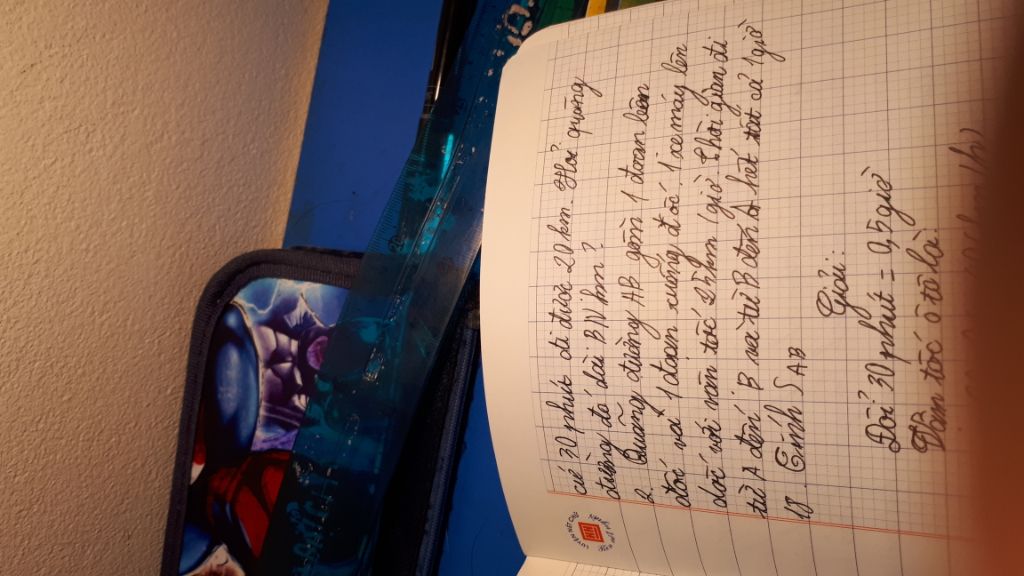 cứ 30 phút đi được 20 km. Hỏi quãng
đường đó dài BN km?
2. Quãng đường AB gồm 1 đoạn lên
dốc và 1 đoạn xuống dốc. 1 xe máy lên
dốc với vận tốc 25km/giờ. Thời gian đi
từ A đến B và từ B đến A hết tất cả 1giờ
Tính S AB
Giải:
Đổi 30 phút = 0,5 giờ
Vận tốc ô tô là: